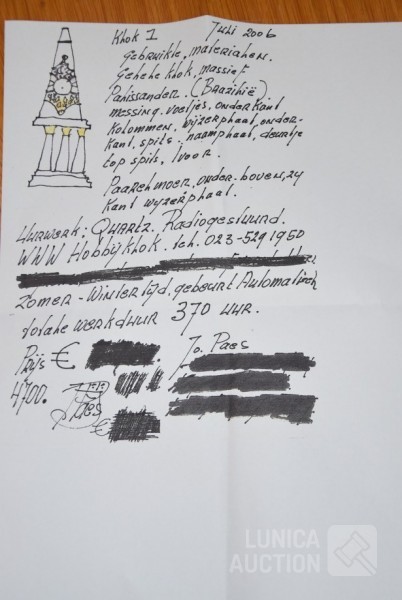 Klok 1 Juli 2006
Gebruikte, materialen.
Gehele klok, massief
Palissander. (Brazilië)
messing. voetjes, onderkant,
kolommen, wijzerplaat, onder-
kant, spits. naamplaat, deurtje
top spits, Ivoor.
Paarlemoer, onder-boven, zij
kant wijzerplaat.
Uurwerk: Quartz. Radiogestuurd.
WWW Hobbyklok. tel. 023-5291950
Zomer-Wintertijd, gebeurt Automatisch
totale werkduur 370 uur.
Prijs € Jo. Paes
4700.
Paes
€
LUNICA
AUCTION